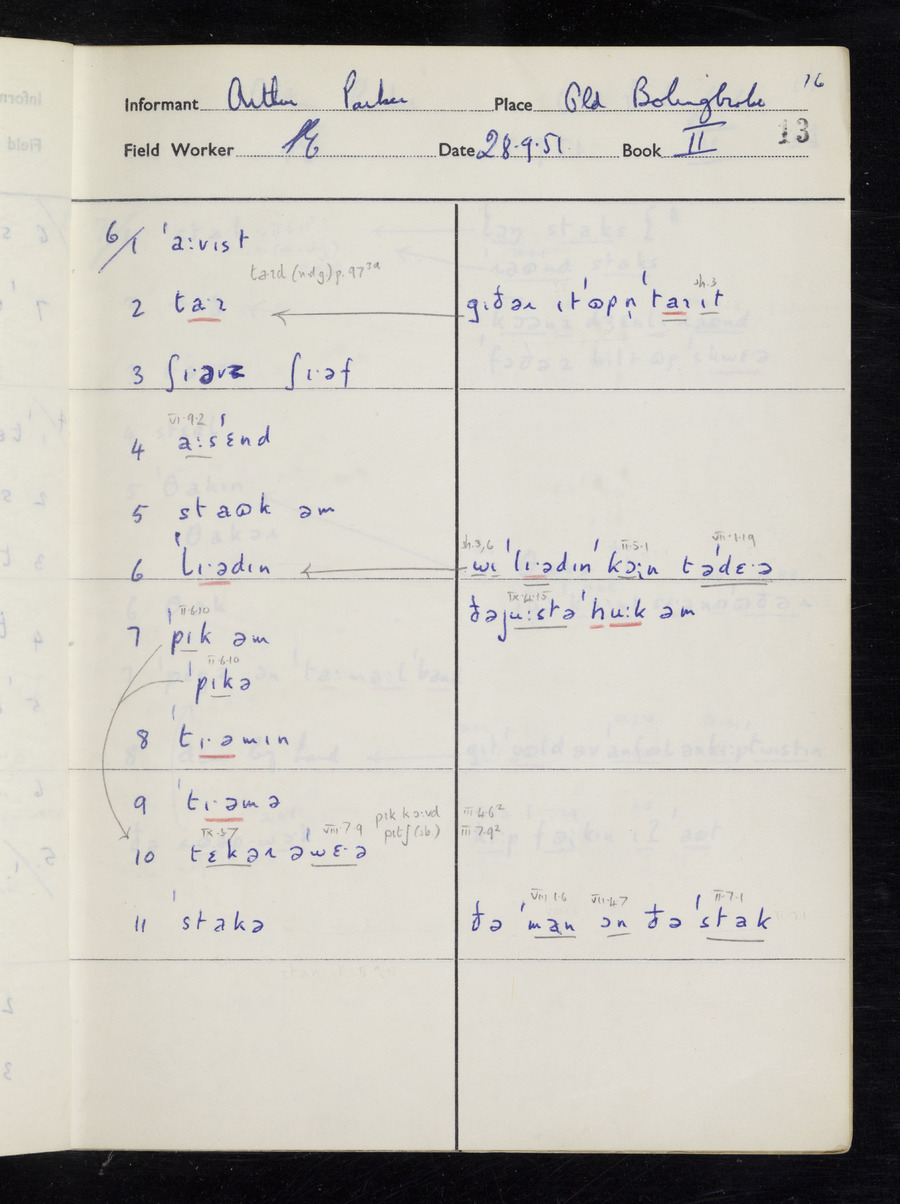 16
Informant Arthur Parker Place Old Bolingbroke
13
Field Worker Date 28.9.51. Book II
6/1 ˈaːvɪst
taɪd (ndg) p. 97
2 gɪðəɹ ɪtˈɷpn̩ˈtaɪɪt
sh.3
3 ʃɪ·əvz ʃɪ·əf
VI.9.2
4 aːsˈɛnd
5 staɷk əm
sh.3,6 II.5.1 VII.1.19
6 ˈlɪ·ədɪn wɪˈlɪ·ədɪnˈkɔːn tədɛ·ə
IX.4.15
ðəjuːstəˈhuːk əm
II.6.10
7 ˈpɪk əm
II.6.10
ˈpɪkə
8 ˈtɪ·əmɪn
9 ˈtɪ·əmə
pɪk kɔːvd III.4.6²
IX.3.7 VIII.7.9 pɪtʃ (sb.) III.7.9²
10 tɛkəɹ əˈwɛ·ə
VIII.1.6 VII.4.7 II.7.1
11 ˈstakə ðə ˈman ɔn ðə ˈstak